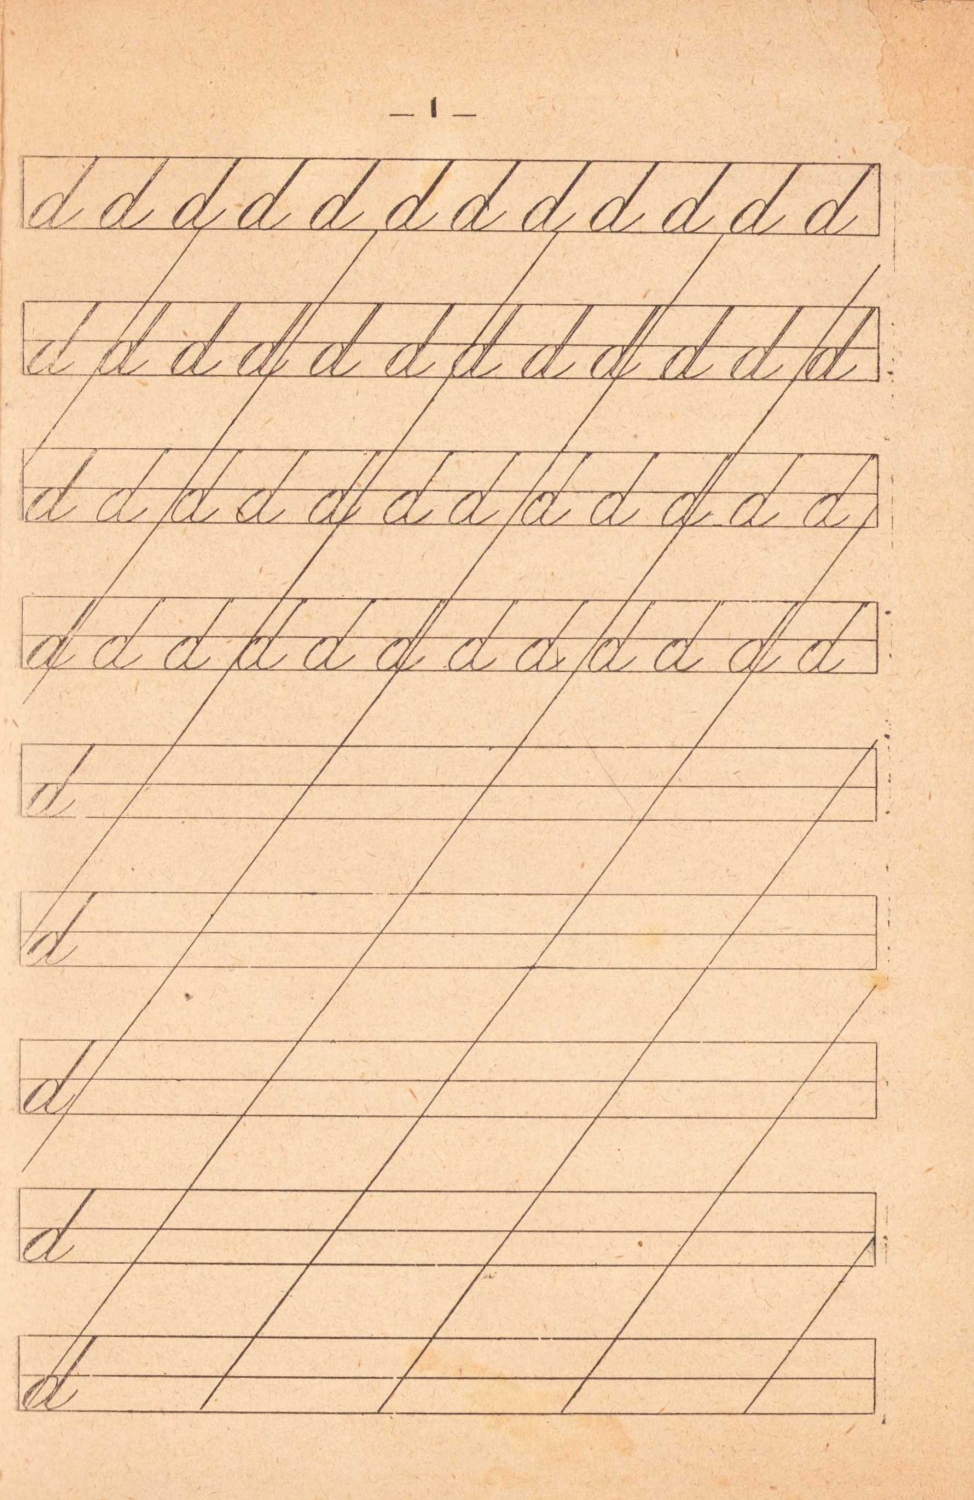 — 1 —
d d d d d d d d d d d d
d d d d d d d d d d d d
d d d d d d d d d d d d
d d d d d d d d d d d d
d
d
d
d
d